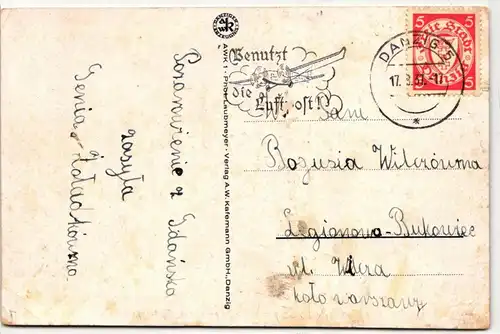 Pozdrowienie z Gdańska
zasyła
Genia Żołądkówna
AWK 1 - Photo Laubmeyer - Verlag A.W. Kafemann GmbH., Danzig
Benutzt
die Luftpost!
DANZIG 5
17.8.37.-17
5 5
Freie Stadt
Danzig
5 5
Pani
Bogusia Wilczówna
Legionowo-Bukowiec
ul. Wiera
koło warszawy